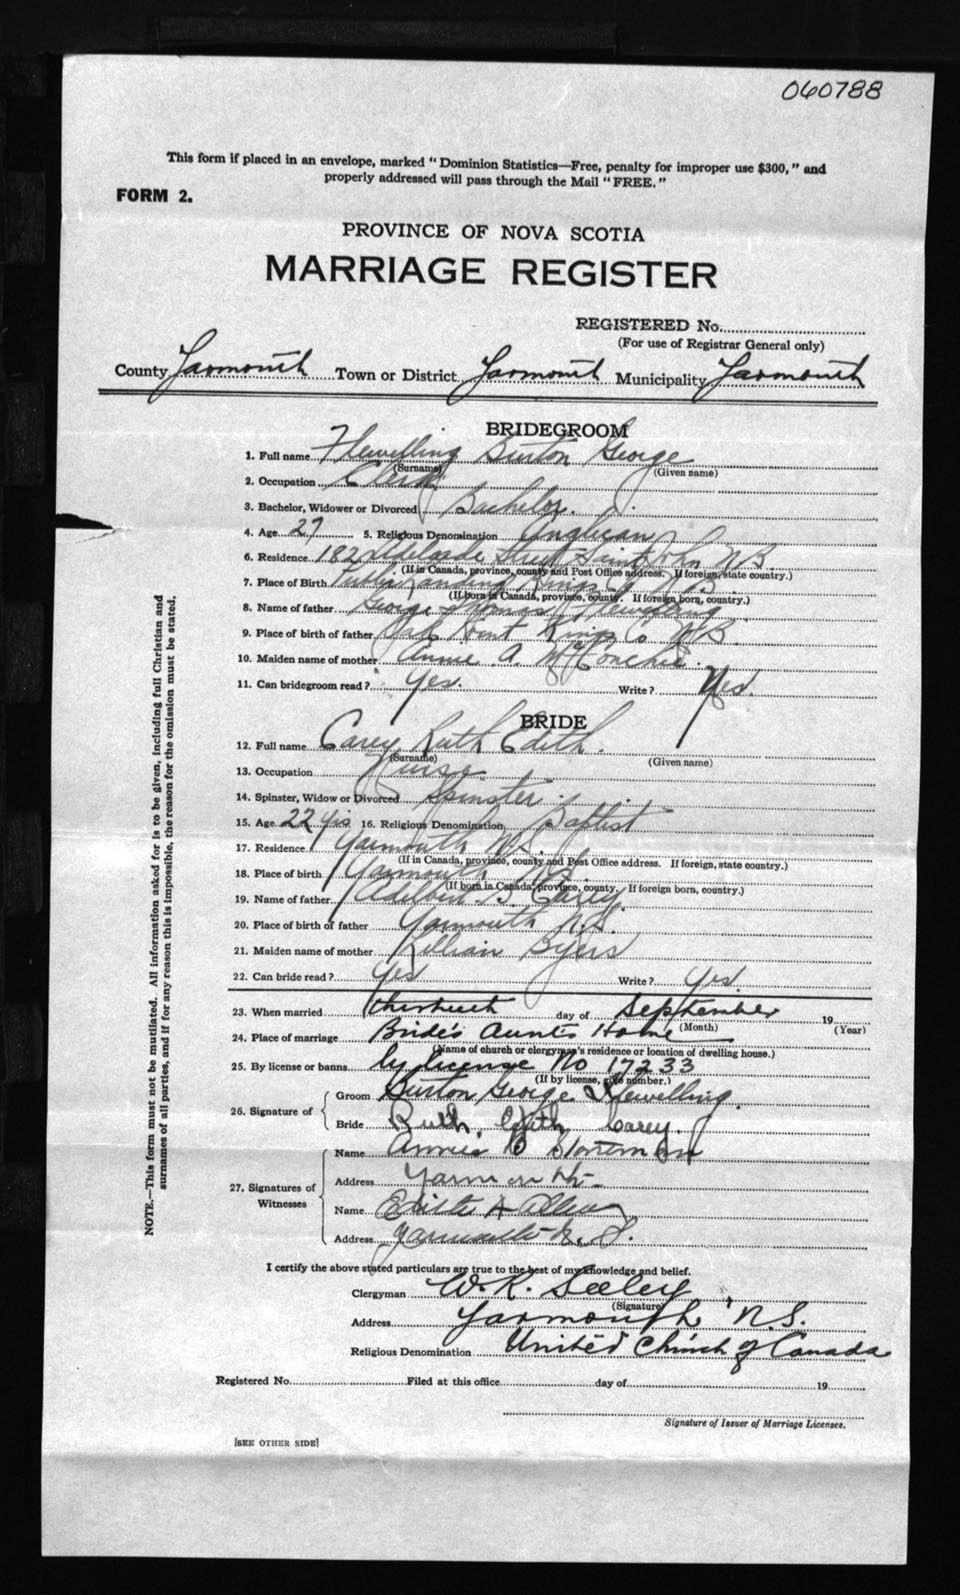 060788
This form if placed in an envelope, marked "Dominion Statistics—Free, penalty for improper use $300," and
properly addressed will pass through the Mail "FREE."
FORM 2.
PROVINCE OF NOVA SCOTIA
MARRIAGE REGISTER
REGISTERED No.
(For use of Registrar General only)
County Yarmouth Town or District Yarmouth Municipality Yarmouth
BRIDEGROOM
1. Full name Flewelling Burton George
(Surname) (Given name)
2. Occupation Clerk
3. Bachelor, Widower or Divorced Bachelor.
4. Age 27 5. Religious Denomination Anglican
6. Residence 182 Adelaide Street Saint John N B.
(If in Canada, province, county and Post Office address. If foreign, state country.)
7. Place of Birth Public Landing Kings Co N B.
(If born in Canada, province, county. If foreign born, country.)
8. Name of father George Thomas Flewelling
9. Place of birth of father Oak Point Kings Co N B.
10. Maiden name of mother Annie A. McConchie.
11. Can bridegroom read? Yes. Write? Yes.
BRIDE
12. Full name Carey Ruth Edith.
(Surname) (Given name)
13. Occupation Nurse
14. Spinster, Widow or Divorced Spinster.
15. Age 22 yrs 16. Religious Denomination Baptist
17. Residence Yarmouth N.S.
(If in Canada, province, county and Post Office address. If foreign, state country.)
18. Place of birth Yarmouth N.S.
(If born in Canada, province, county. If foreign born, country.)
19. Name of father Adelbert S. Carey.
20. Place of birth of father Yarmouth N.S.
21. Maiden name of mother Lillian Byers
22. Can bride read? Yes Write? Yes.
23. When married day of September 19
(Month) (Year)
24. Place of marriage Bride's Aunt's Home
(Name of church or clergyman's residence or location of dwelling house.)
25. By license or banns by license No 17233
(If by license, give number.)
26. Signature of
Groom Burton George Flewelling.
Bride Ruth Edith Carey.
27. Signatures of Witnesses
Name Annie
Address Yarmouth
Name Edith A Allen
Address Yarmouth N. S.
I certify the above stated particulars are true to the best of my knowledge and belief.
Clergyman W. R. Seeley
(Signature)
Address Yarmouth, N.S.
Religious Denomination United Church of Canada
Registered No. Filed at this office day of 19
Signature of Issuer of Marriage Licenses.
[SEE OTHER SIDE]
NOTE.—This form must not be mutilated. All information asked for is to be given, including full Christian and
surnames of all parties, and if for any reason this is impossible, the reason for the omission must be stated.